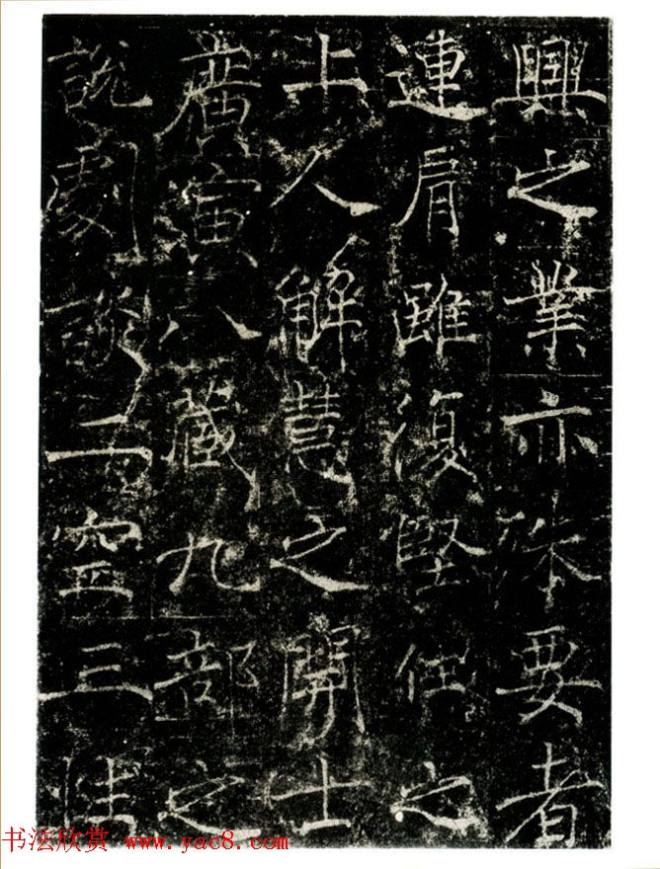 興之業亦殊要者
連肩雖復之
上人解慧之開士
廣演八藏九部之
說劇談二空三性
书法欣赏 www.yac8.com